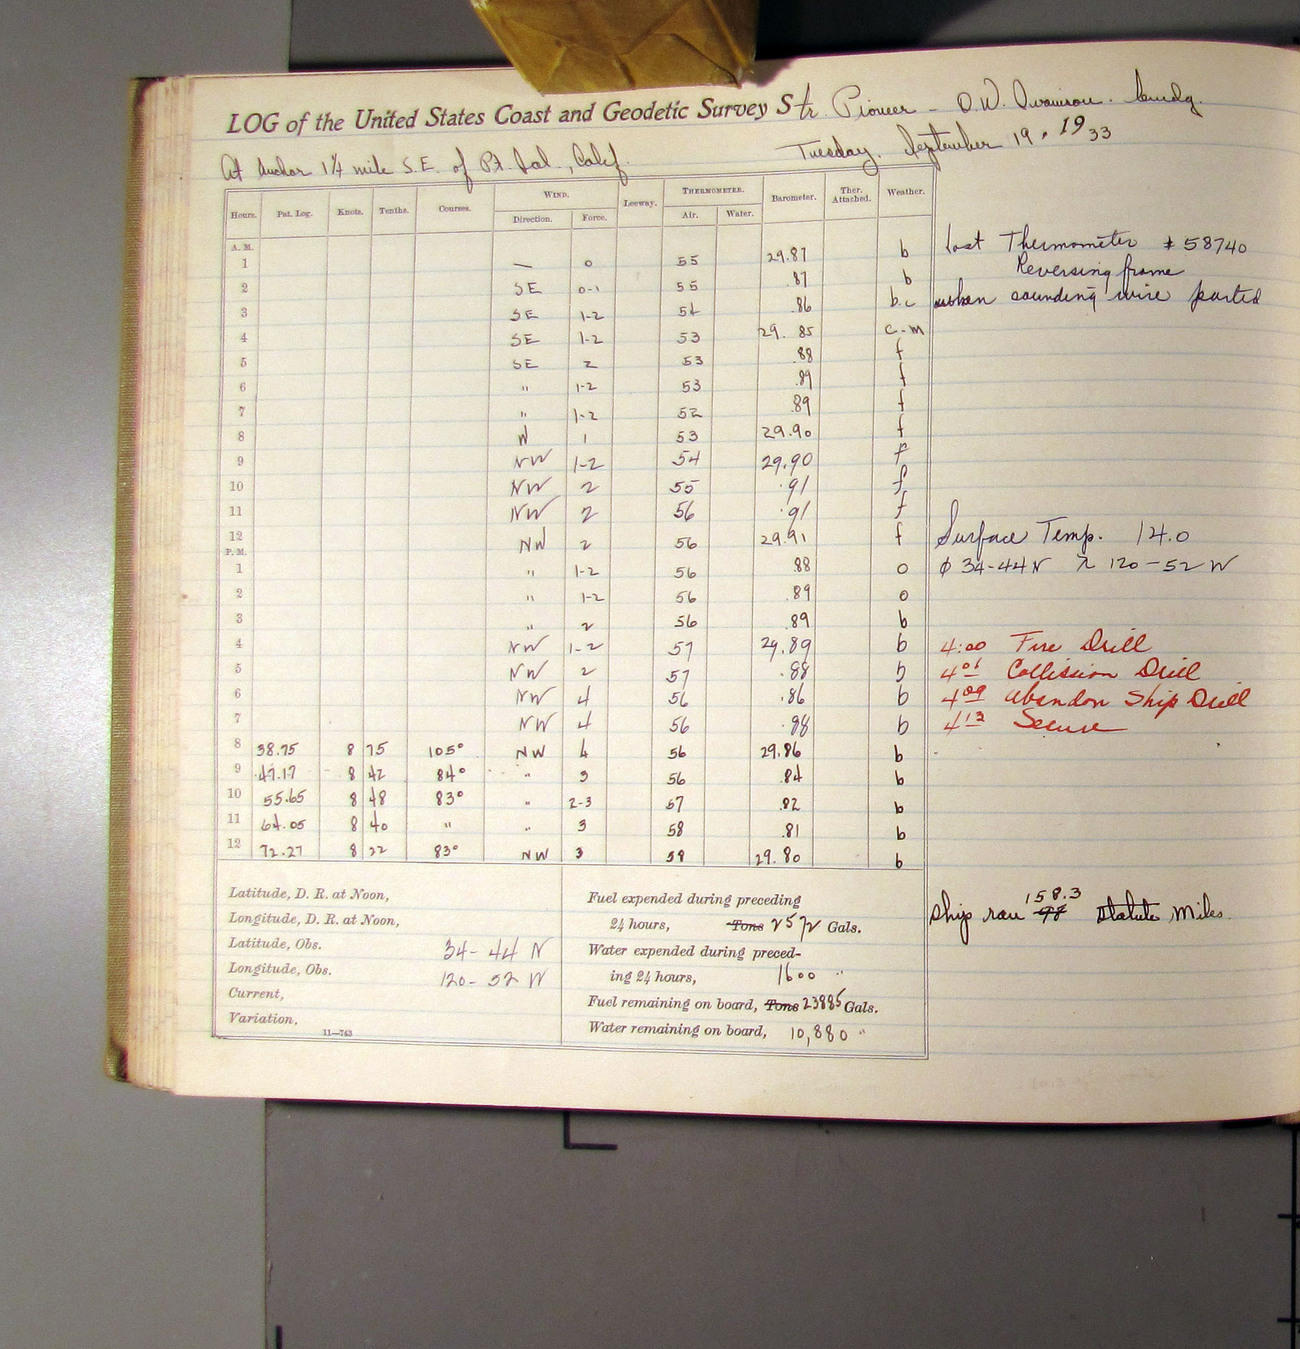 LOG of the United States Coast and Geodetic Survey Str. Pioneer - O.W. Swainson. Comdg.
At Anchor 1 1/4 mile S.E. of Pt. Sal., Calif. Tuesday. September 19. 1933
Hours. Pat. Log. Knots. Tenths. Courses. WIND. Leeway. THERMOMETER. Barometer. Ther. Attached. Weather.
Direction. Force. Air. Water.
A. M.
1 — 0 55 29.87 b Lost Thermometer # 58740
Reversing frame
2 SE 0-1 55 .87 b
3 SE 1-2 54 .86 b.c when sounding wire parted
4 SE 1-2 53 29.85 c-m
5 SE 2 53 .88 f
6 " 1-2 53 .89 f
7 " 1-2 52 .89 f
8 W 1 53 29.90 f
9 NW 1-2 54 29.90 f
10 NW 2 55 .91 f
11 NW 2 56 .91 f
12 NW 2 56 29.91 f Surface Temp. 14.0
P. M.
1 " 1-2 56 .88 o φ 34-44 N λ 120-52 W
2 " 1-2 56 .89 o
3 " 2 56 .89 b
4 NW 1-2 57 29.89 b 4:00 Fire Drill
5 NW 2 57 .88 b 4 06 Collission Drill
6 NW 4 56 .86 b 4 09 Abandon Ship Drill
7 NW 4 56 .88 b 4 13 Secure
8 38.75 8 75 105° NW 4 56 29.86 b
9 47.17 8 42 84° " 3 56 .84 b
10 55.65 8 48 83° " 2-3 57 .82 b
11 64.05 8 40 " " 3 58 .81 b
12 72.27 8 22 83° NW 3 58 29.80 b
Latitude, D. R. at Noon, Fuel expended during preceding
Longitude, D. R. at Noon, 24 hours, Tons 2572 Gals. Ship ran 98 158.3 statute miles.
Latitude, Obs. 34-44 N Water expended during preced-
Longitude, Obs. 120-52 W ing 24 hours, 1600 "
Current, Fuel remaining on board, Tons 23885 Gals.
Variation, Water remaining on board, 10,880 "
11—743